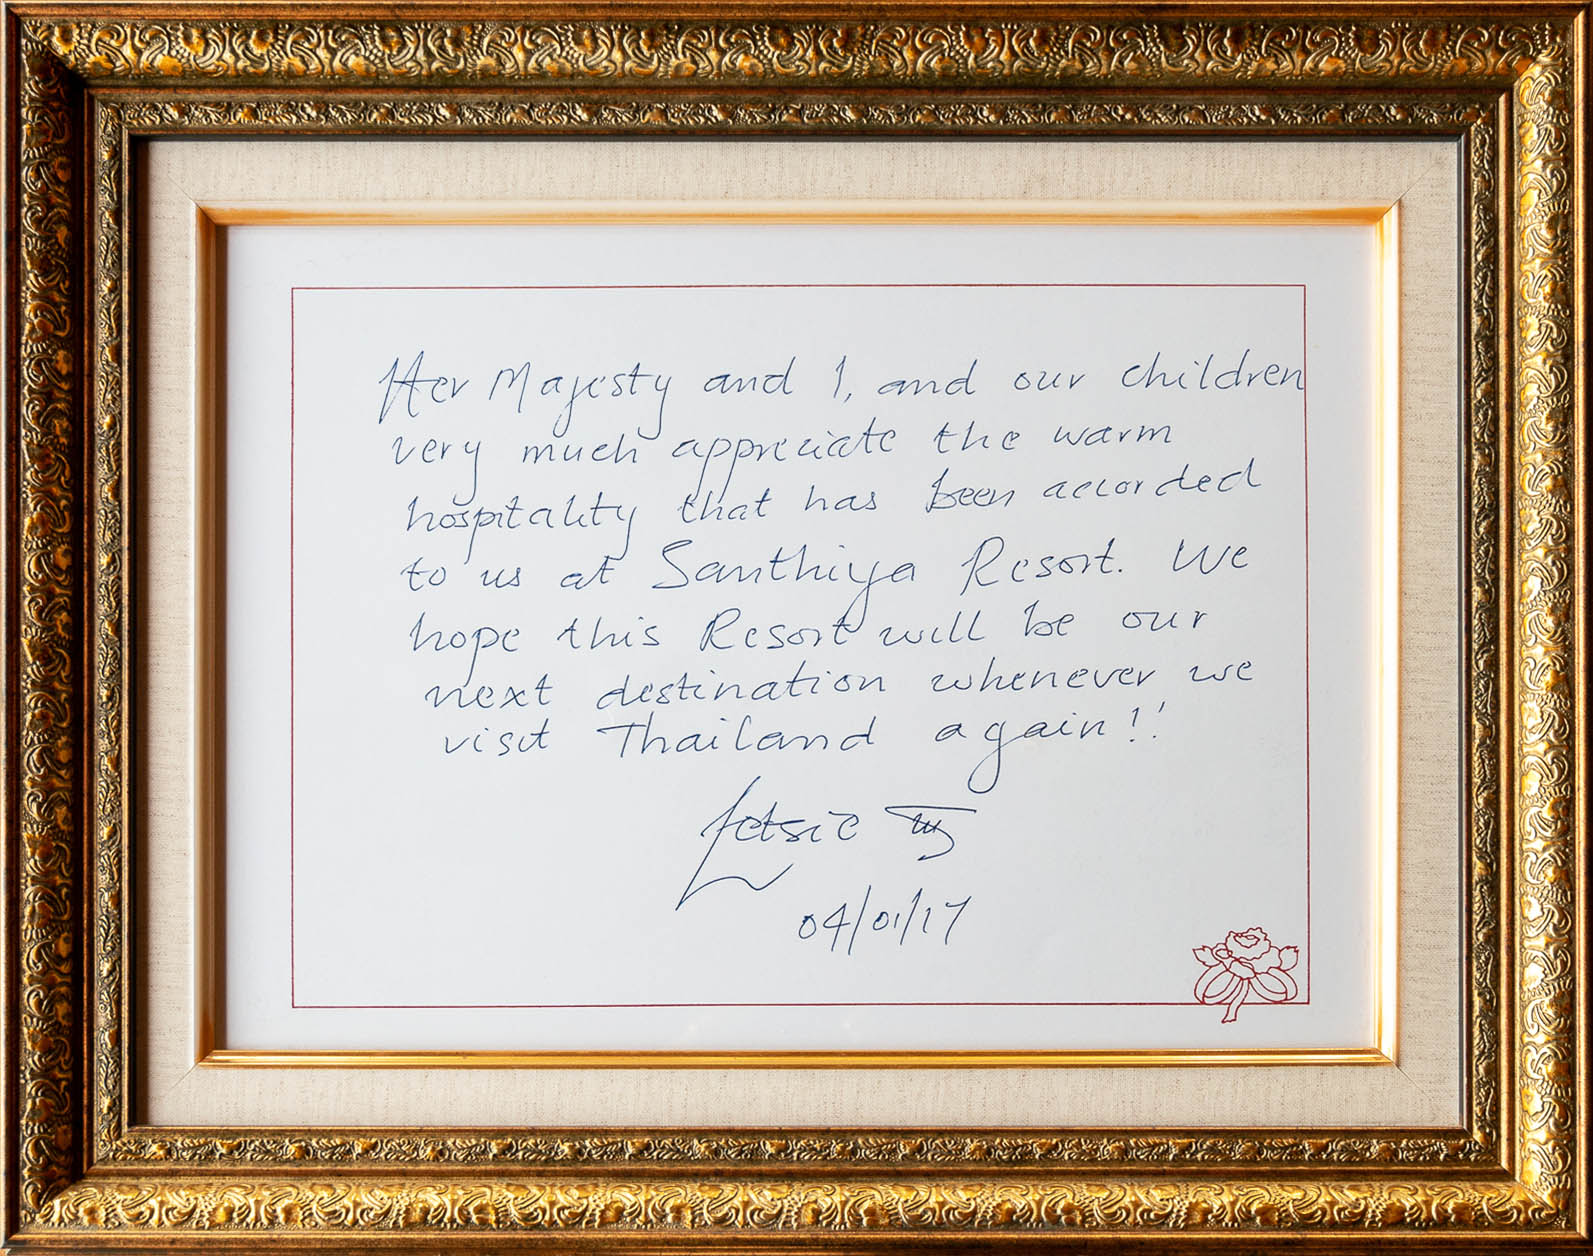 Her Majesty and I, and our children
very much appreciate the warm
hospitality that has been accorded
to us at Santhiya Resort. We
hope this Resort will be our
next destination whenever we
visit Thailand again!!
Letsie III
04/01/17